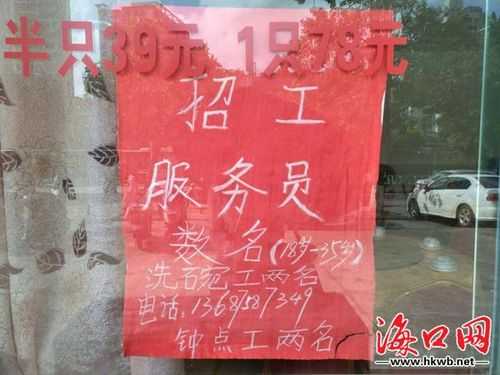 半只39元 1只78元
招工
服务员
数名(18岁-35岁)
洗碗工两名
电话:
钟点工两名
海口网
www.hkwb.net